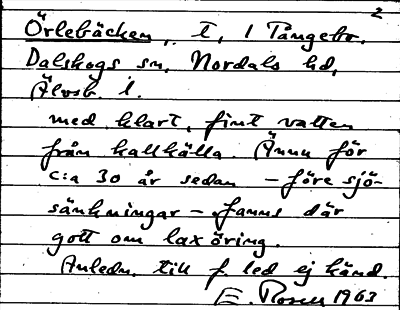 2
Örlebäcken, t, 1 Tångebo.
Dalskogs sn, Nordals hd,
Älvsb. l.
med klart, fint vatten
från kallkälla. Ännu för
c:a 30 år sedan - före sjö-
sänkningar - fanns där
gott om laxöring.
Anledn. till f. led ej känd.
E. Rosell 1963